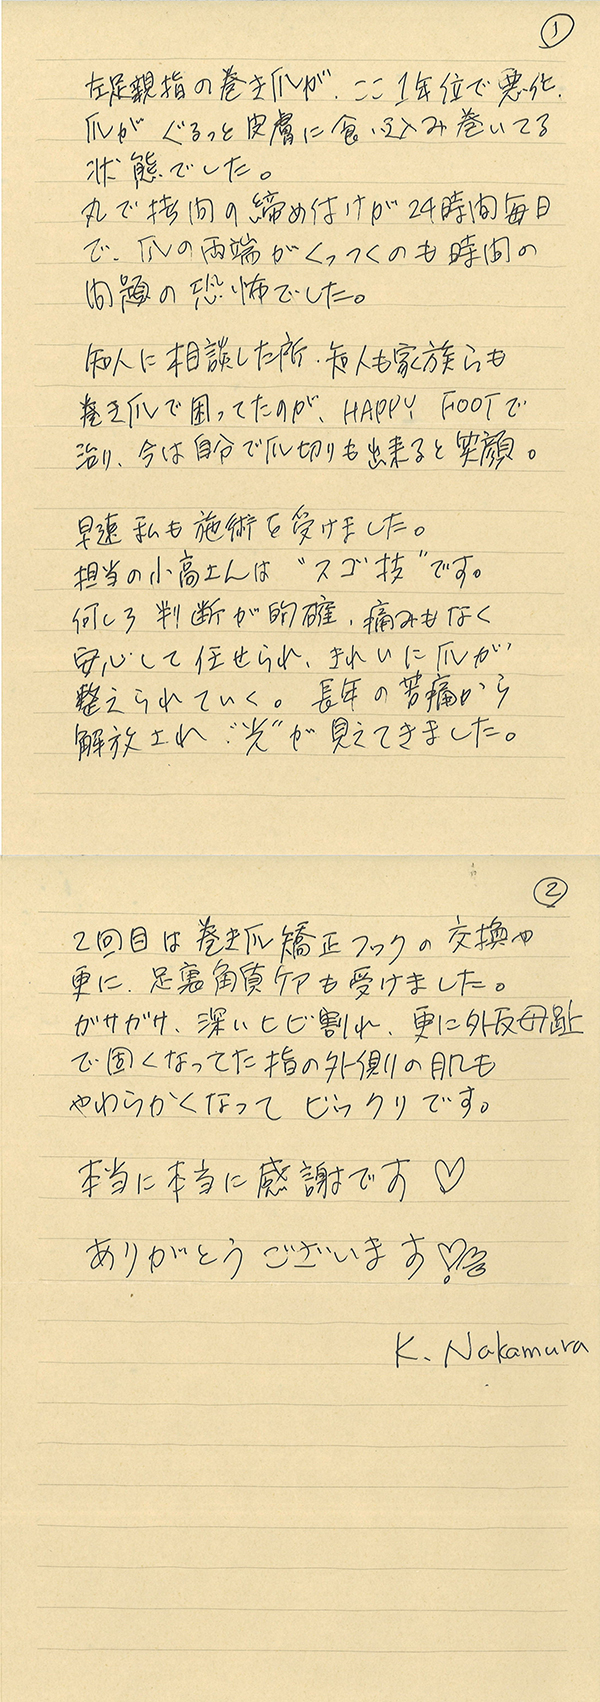 ①
左足親指の巻き爪が、ここ1年位で悪化、
爪が ぐるっと皮膚に食い込み巻いてる
状態でした。
丸で拷問の締め付けが24時間毎日
で、爪の両端がくっつくのも時間の
問題の恐怖でした。
知人に相談した所、知人も家族らも
巻き爪で困ってたのが、HAPPY FOOTで
治り、今は自分で爪切りも出来ると笑顔。
早速私も施術を受けました。
担当の小高さんは“スゴ技”です。
何しろ判断が的確、痛みもなく
安心して任せられ、きれいに爪が
整えられていく。長年の苦痛から
解放され“光”が見えてきました。
②
2回目は巻き爪矯正フックの交換や
更に、足裏角質ケアも受けました。
ガサガサ、深いヒビ割れ、更に外反母趾
で固くなってた指の外側の肌も
やわらかくなってビックリです。
本当に本当に感謝です♡
ありがとうございます♡
K. Nakamura